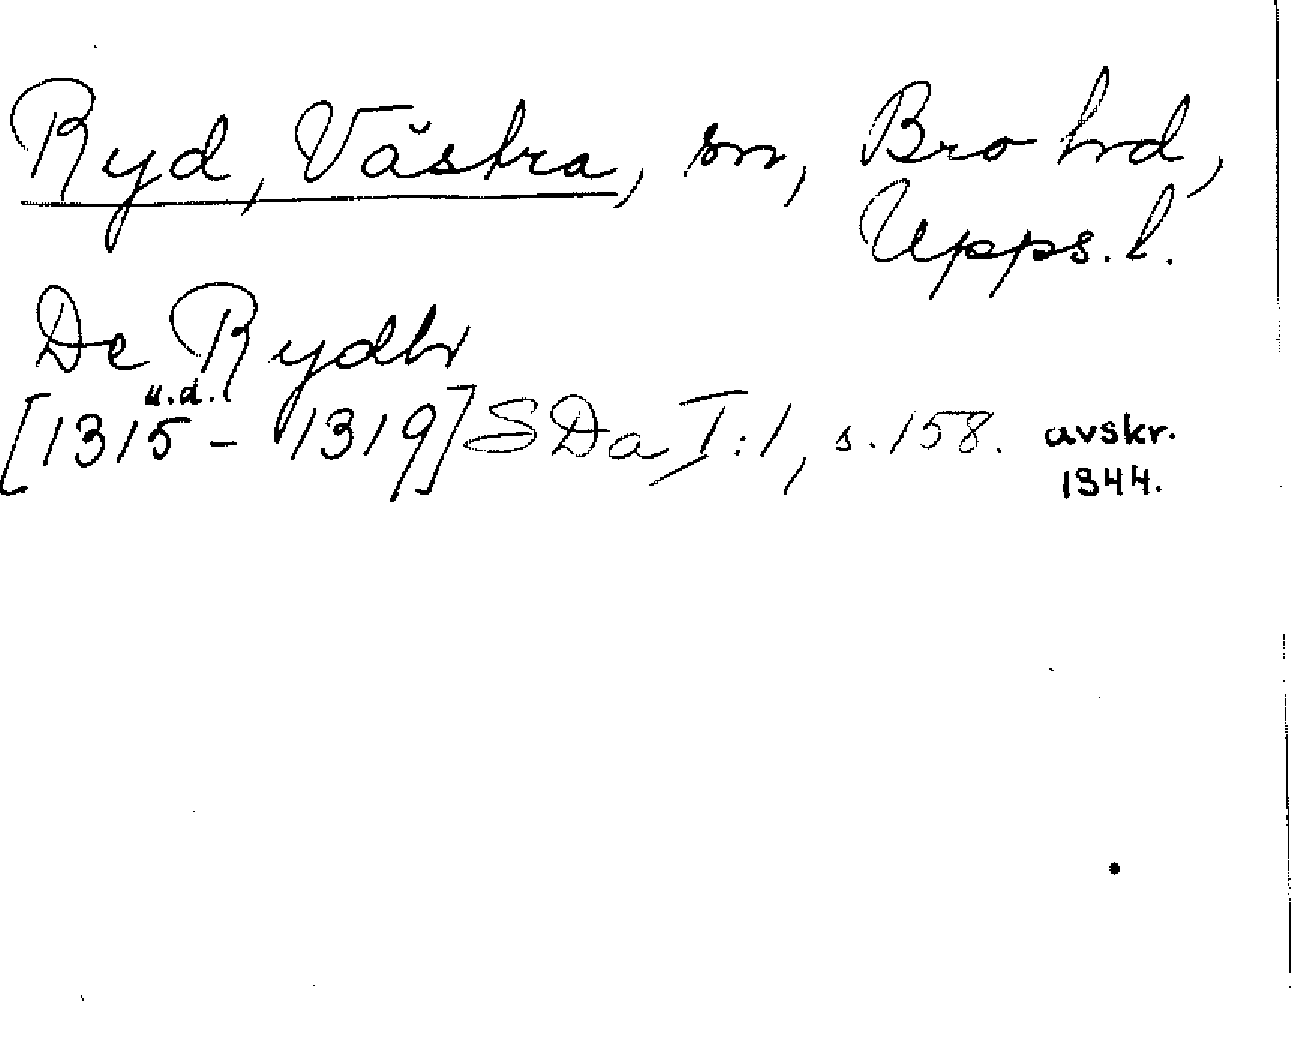 Ryd, Västra, sn, Bro hrd,
Upps. l.
De Rydh
u.d.
[1315 - 1319] SDa I:1, s. 158. avskr.
1344.